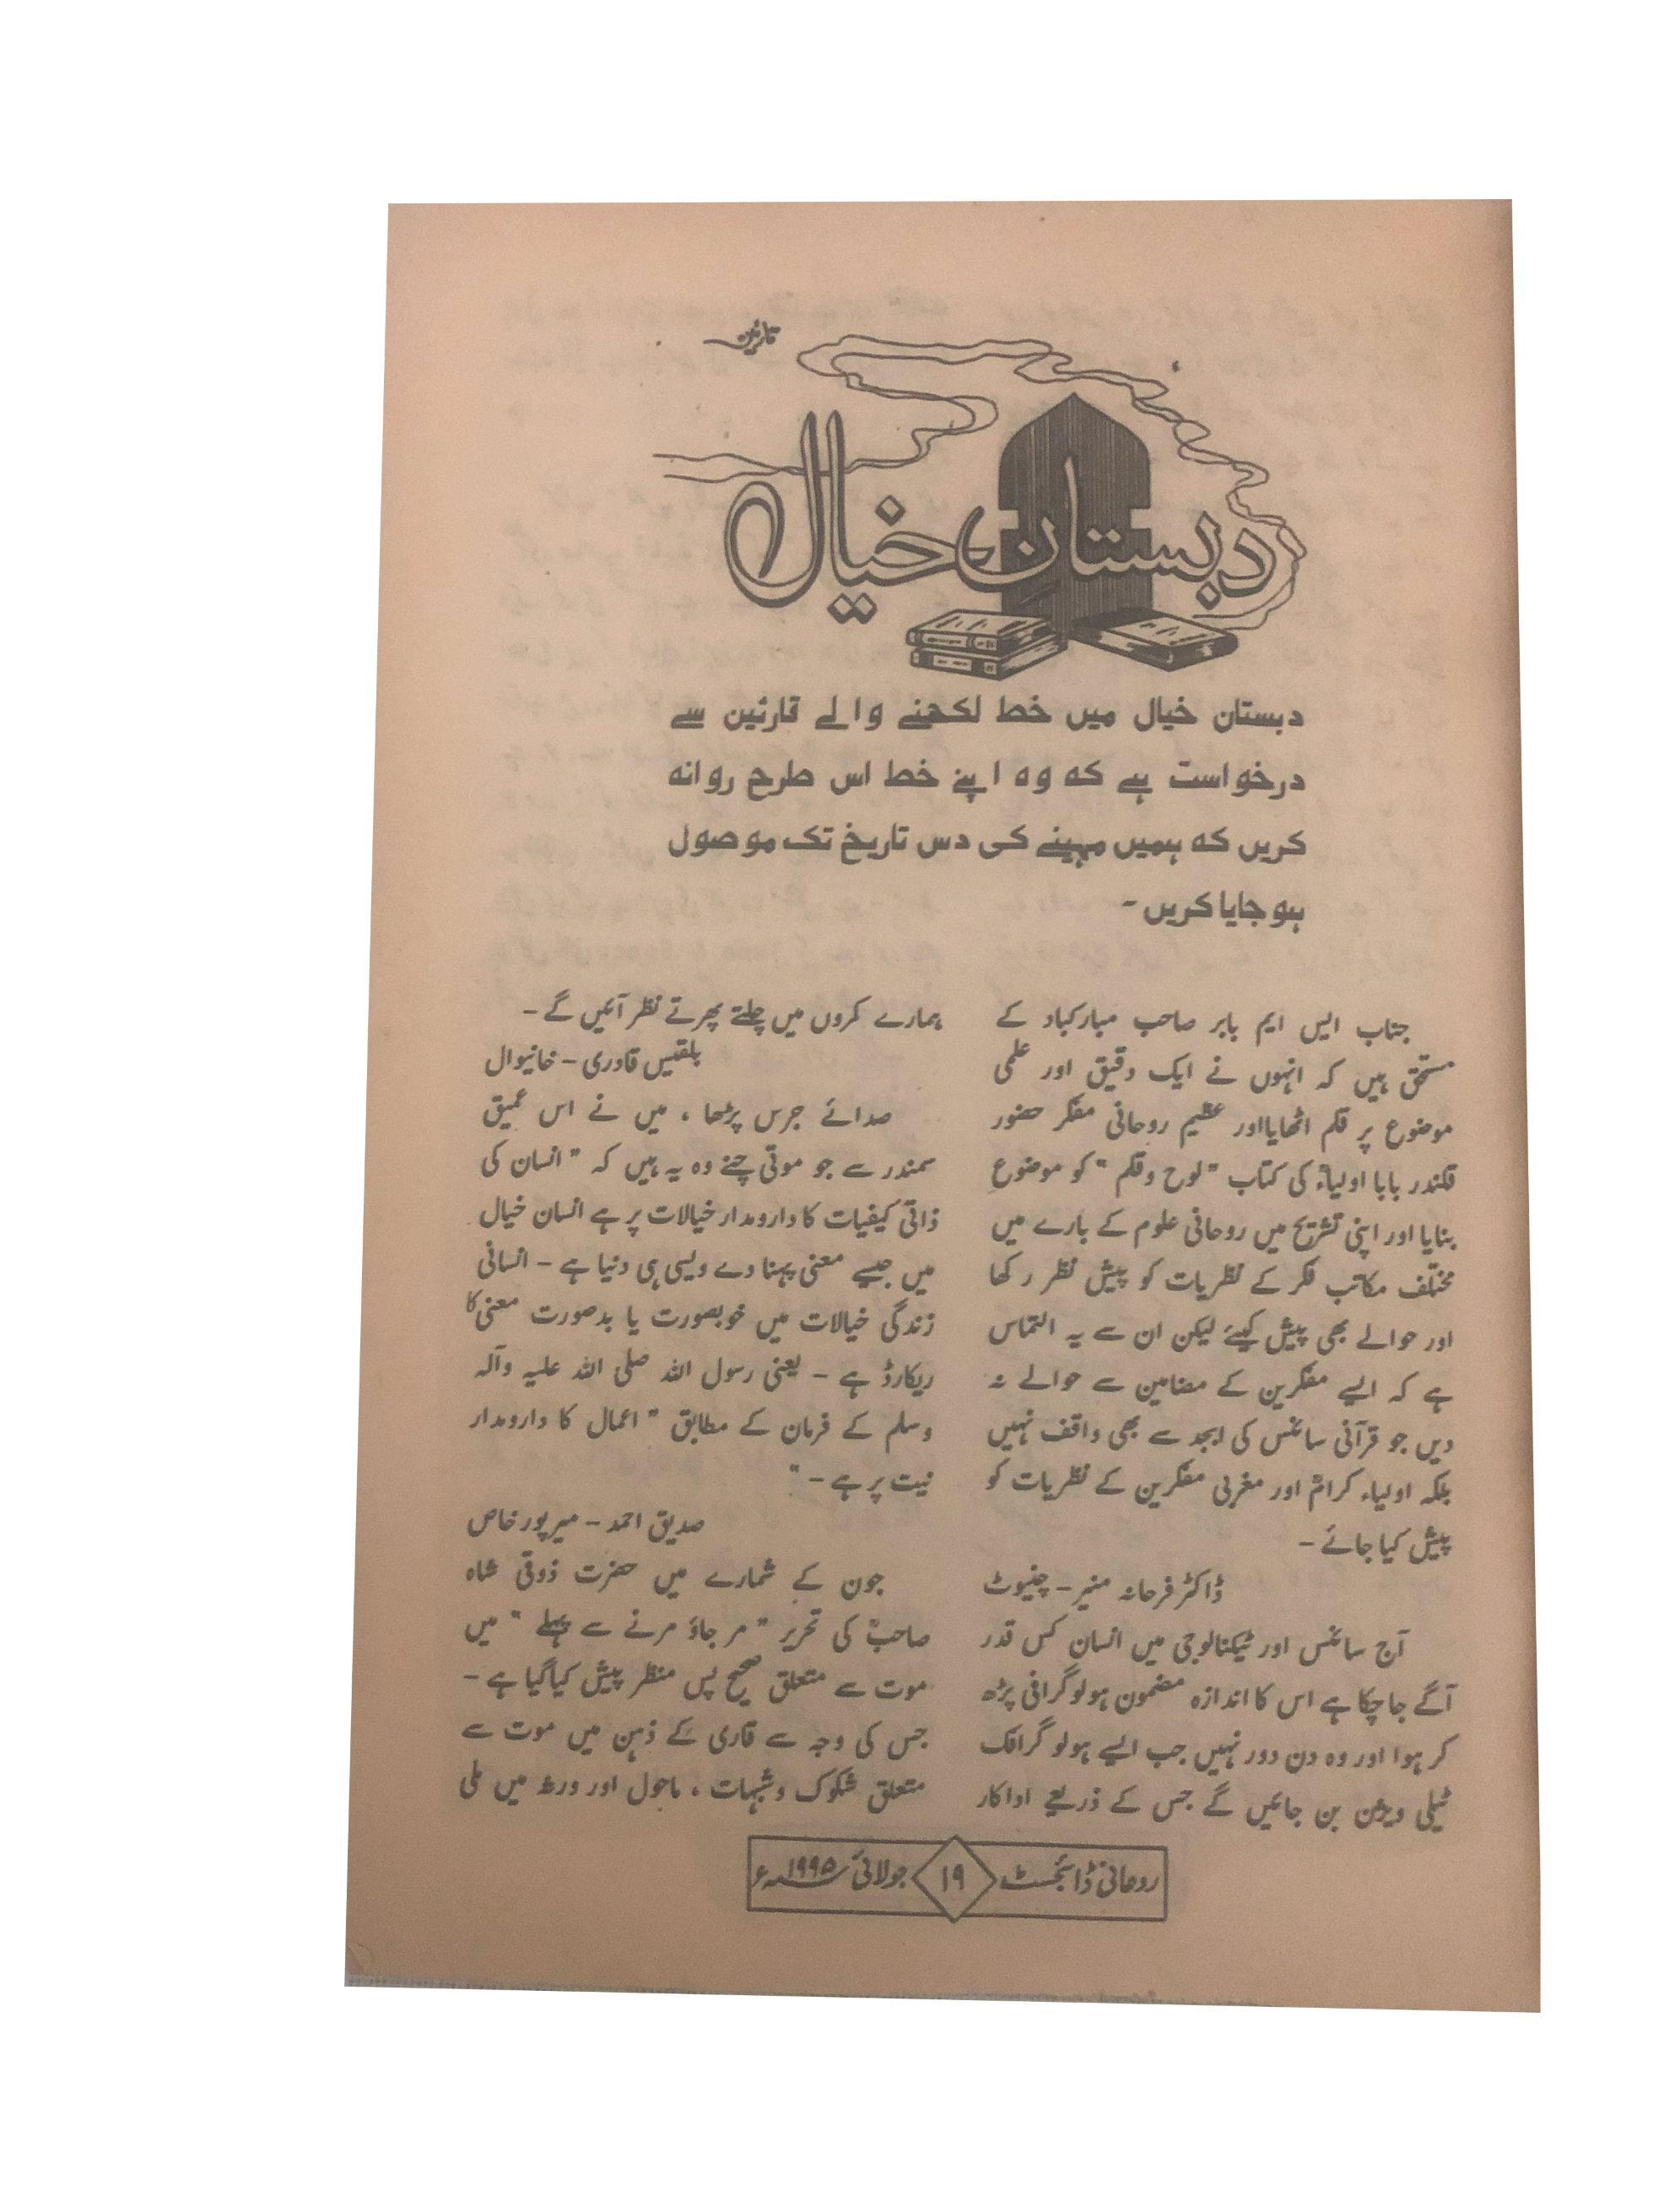 قارئین
دبستانِ خیال
دبستان خیال میں خط لکھنے والے قارئین سے
درخواست ہے کہ وہ اپنے خط اس طرح روانہ
کریں کہ ہمیں مہینے کی دس تاریخ تک موصول
ہوجایا کریں۔
جناب ایس ایم بابر صاحب مبارکباد کے
مستحق ہیں کہ انہوں نے ایک دقیق اور علمی
موضوع پر قلم اٹھایا اور عظیم روحانی مفکر حضور
قلندر بابا اولیاءؒ کی کتاب "لوح وقلم" کو موضوعِ
بنایا اور اپنی تشریح میں روحانی علوم کے بارے میں
مختلف مکاتب فکر کے نظریات کو پیش نظر رکھا
اور حوالے بھی پیش کیئے لیکن ان سے یہ التماس
ہے کہ ایسے مفکرین کے مضامین سے حوالے نہ
دیں جو قرآنی سائنس کی ابجد سے بھی واقف نہیں
بلکہ اولیاء کرامؒ اور مغربی مفکرین کے نظریات کو
پیش کیا جائے۔
ڈاکٹر فرحانہ منیر۔ چنیوٹ
آج سائنس اور ٹیکنالوجی میں انسان کس قدر
آگے جاچکا ہے اس کا اندازہ مضمون ہولوگرافی پڑھ
کر ہوا اور وہ دن دور نہیں جب ایسے ہولو گرافک
ٹیلی ویژن بن جائیں گے جس کے ذریعے اداکار
ہمارے کمروں میں چلتے پھرتے نظر آئیں گے۔
بلقیس قادری۔ خانیوال
صدائے جرس پڑھا، میں نے اس عمیق
سمندر سے جو موتی چنے وہ یہ ہیں کہ "انسان کی
ذاتی کیفیات کا دارومدار خیالات پر ہے انسان خیال
میں جیسے معنی پہنا دے ویسی ہی دنیا ہے۔ انسانی
زندگی خیالات میں خوبصورت یا بدصورت معنی کا
ریکارڈ ہے۔ یعنی رسول اللہ صلی اللہ علیہ وآلہ
وسلم کے فرمان کے مطابق "اعمال کا دارومدار
نیت پر ہے۔"
صدیق احمد۔ میرپور خاص
جون کے شمارے میں حضرت ذوقی شاہ
صاحبؒ کی تحریر "مر جاؤ مرنے سے پہلے" میں
موت سے متعلق صحیح پس منظر پیش کیا گیا ہے۔
جس کی وجہ سے قاری کے ذہن میں موت سے
متعلق شکوک وشبہات، ماحول اور ورثہ میں ملی
روحانی ڈائجسٹ ۱۹ جولائی ۱۹۹۵ء